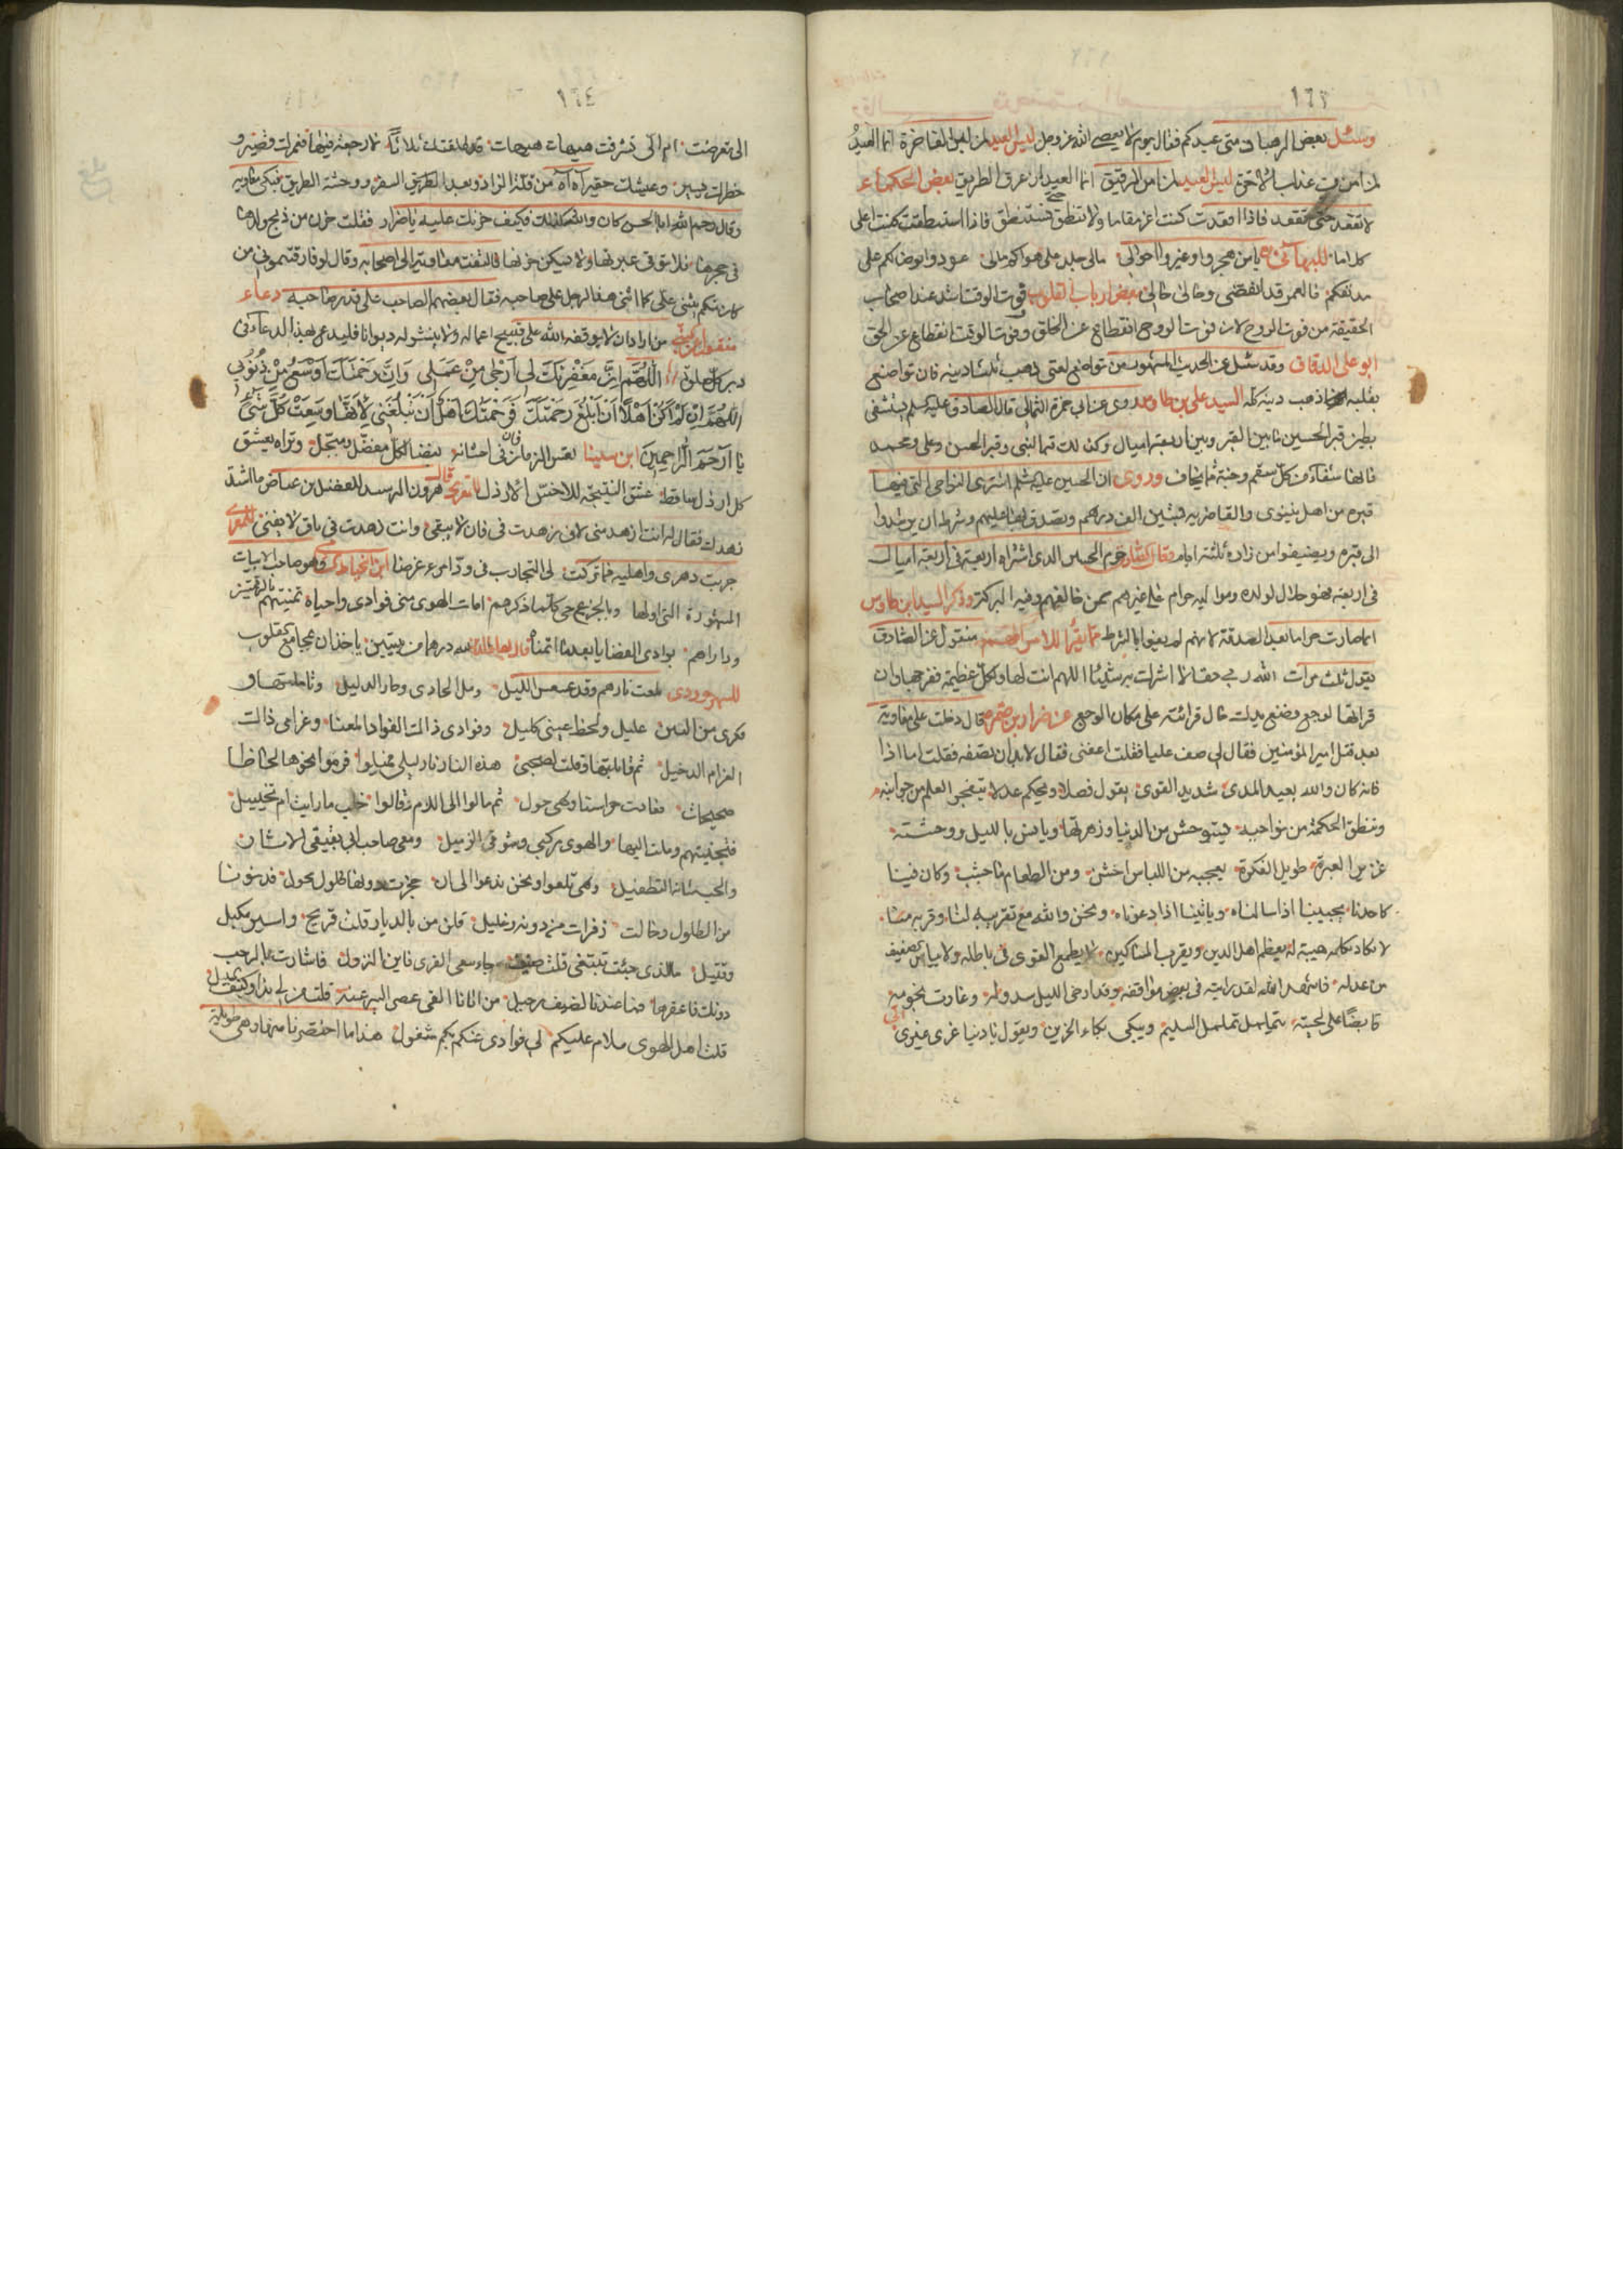 ١٦٣
وسئل بعض الرهبان متى عيدكم فقال يوم لا يعصى الله عز وجل ليس العيد لمن لبس الفاخرة انما العيد
لمن امن من عذاب الآخرة ليس العيد لمن الرقيق انما العيد لمن عرف الطريق لبعض الحكماء
لا تقعد حتى تقعد فاذا اقعدت كنت اعز مقاما ولا تنطق حتى تستنطق فاذا استنطقت كنت اعلى
كلاما للبهائى يا من هجروا وغيروا احوالى مالى جلد على هواكم مالى عودوا بوصالكم على
مدنفكم فالعمر قد انقضى وحالى حالى بعض ارباب القلوب فوت الوقت اشد عند اصحاب
الحقيقة من فوت الروح لان فوت الروح انقطاع عن الخلق وفوت الوقت انقطاع عن الحق
ابو على الدقاق وقد سئل عن الحديث المشهور من تواضع لغنى ذهب ثلثا دينه فان تواضع
بقلبه ذهب دينه كله السيد على بن طاوس روى عن ابى حمزة الثمالى قال الصادق عليه السلم يستشفى
بطين قبر الحسين ما بين القبر وبين اربعة اميال وكذلك قبر النبى وقبر الحسن وعلى ومحمد
فانها شفاء من كل سقم وجنة مما يخاف وروى ان الحسين عليه السلم اشترى النواحى التى فيها
قبره من اهل نينوى والغاضرية بستين الف درهم وتصدق بها عليهم وشرط ان يرشدوا
الى قبره ويضيفوا من زاره ثلثة ايام وقال الصادق حرم الحسين الذى اشتراه اربعة فى اربعة اميال
فى اربعة فهو حلال لولده ومواليه حرام على غيرهم ممن خالفهم وفيه البركة وذكر السيد ابن طاوس
انما صارت حراما بعد الصدقة لانهم لم يفوا بالشرط مما يقرأ للاسر منقول عن الصادق
يقول ثلث مرات الله ربى حقا لا اشرك به شيئا اللهم انت لها ولكل عظيمة ففرجها وان
قراتها لوجع فضع يدك حال قرائته على مكان الوجع عن ضرار بن ضمره قال دخلت على معاوية
بعد قتل امير المؤمنين فقال لى صف عليا فقلت اعفنى فقال لابد ان تصفه فقلت اما اذا
فانه كان والله بعيد المدى شديد القوى يقول فصلا ويحكم عدلا يتفجر العلم من جوانبه
وتنطق الحكمة من نواحيه يستوحش من الدنيا وزهرتها ويانس بالليل ووحشته
غزير العبرة طويل الفكرة يعجبه من اللباس اخشن ومن الطعام ما جشب وكان فينا
كاحدنا يجيبنا اذا سالناه وياتينا اذا دعوناه ونحن والله مع تقريبه لنا وقربه منا
لا نكاد نكلمه هيبة له يعظم اهل الدين ويقرب المساكين لا يطمع القوى فى باطله ولا يياس الضعيف
من عدله فاشهد الله لقد رايته فى بعض مواقفه وقد ارخى الليل سدوله وغارت نجومه
قابضا على لحيته يتململ تململ السليم ويبكى بكاء الحزين ويقول يا دنيا غرى غيرى
١٦٤
الى تعرضت ام الى تشرفت هيهات هيهات قد طلقتك ثلاثا لا رجعة فيها فعمرك قصير و
خطرك يسير وعيشك حقير آه آه من قلة الزاد وبعد الطريق السفر ووحشة الطريق فبكى معاوية
وقال رحم الله ابا الحسن كان والله كذلك فكيف حزنك عليه يا ضرار فقلت حزن من ذبح ولدها
فى حجرها فلا ترقى عبرتها ولا يسكن حزنها فالتفت معاوية الى اصحابه وقال لو فارقتمونى من
كان منكم يثنى على كما اثنى هذا الرجل على صاحبه فقال بعضهم الصاحب على قدر صاحبه دعاء
منقول عن النبى من اراد ان لا يوقفه الله على قبيح اعماله ولا ينشر له ديوانا فليدع بهذا الدعاء فى
دبر كل صلوة اَللّٰهُمَّ اِنَّ مَغْفِرَتَكَ لى اَرْجٰى مِنْ عَمَلى وَاِنَّ رَحْمَتَكَ اَوْسَعُ مِنْ ذُنُوبى
اللّٰهُمَّ اِنْ لَمْ اَكُنْ اَهْلًا اَنْ اَبْلُغَ رَحْمَتَكَ فَرَحْمَتُكَ اَهْلٌ اَنْ تَبْلُغَنى لِاَنَّهَا وَسِعَتْ كُلَّ شَىْءٍ
يا اَرْحَمَ الرّاحِمينَ ابن سينا تعس الزمان فان فى احشائه بغضا لكل مفضل ومبجل وتراه يعشق
كل ارذل ساقط عشق النتيجة للاخس الارذل قال هرون الرشيد للفضيل بن عياض ما اشد
زهدك فقال له انت ازهد منى لانى زهدت فى فان لا يبقى وانت زهدت فى باق لا يفنى للمعرى
جربت دهرى واهليه فما تركت لى التجارب فى ود امرء غرضا ابن الخياط وهو صاحب الابيات
المشهورة التى اولها وبالجزع حى كلما عن ذكرهم امات الهوى منى فوادى واحياه تمنيتهم بالرقمتين
ودارهم بوادى الغضا يا بعد ما اتمناه لله درهما من بيتين ياخذان بمجامع القلوب
للسهروردى لمعت نارهم وقد عسعس الليل ومل الحادى وحار الدليل وتاملتها و
فكرى من البين عليل ولحظ عينى كليل وفوادى ذاك الفواد المعنا وغرامى ذالك
الغرام الدخيل ثم قابلتها وقلت لصحبى هذه النار نار ليلى فميلوا فرموا نحوها لحاظا
صحيحات فعادت خواسئا وهى حول ثم مالوا الى الملام وقالوا خلب ما رايت ام تخييل
فتجنبتهم وملت اليها والهوى مركبى وشوقى الزميل ومعى صاحب اتى يقتفى الاثار
والحب شانه التطفيل وهى تعلوا ونحن ندعوا الى ان حجزت دونها طلول محول فدنونا
من الطلول وحالت زفرات من دونه وغليل قلت من بالديار قلت قريح واسير مكبل
وقتيل ما الذى جئت تبتغى قلت ضيف جاء يبغى القرى فاين النزول فاشارت بالرحب
دونك فاعقرها فما عندنا لضيف رحيل من اتانا القى عصى السير عنه قلت من لى بذا وكيف السبيل
قلت اهل الهوى سلام عليكم لى فوادى عنكم بكم مشغول هذا ما اختصرنا منها وهى طويلة